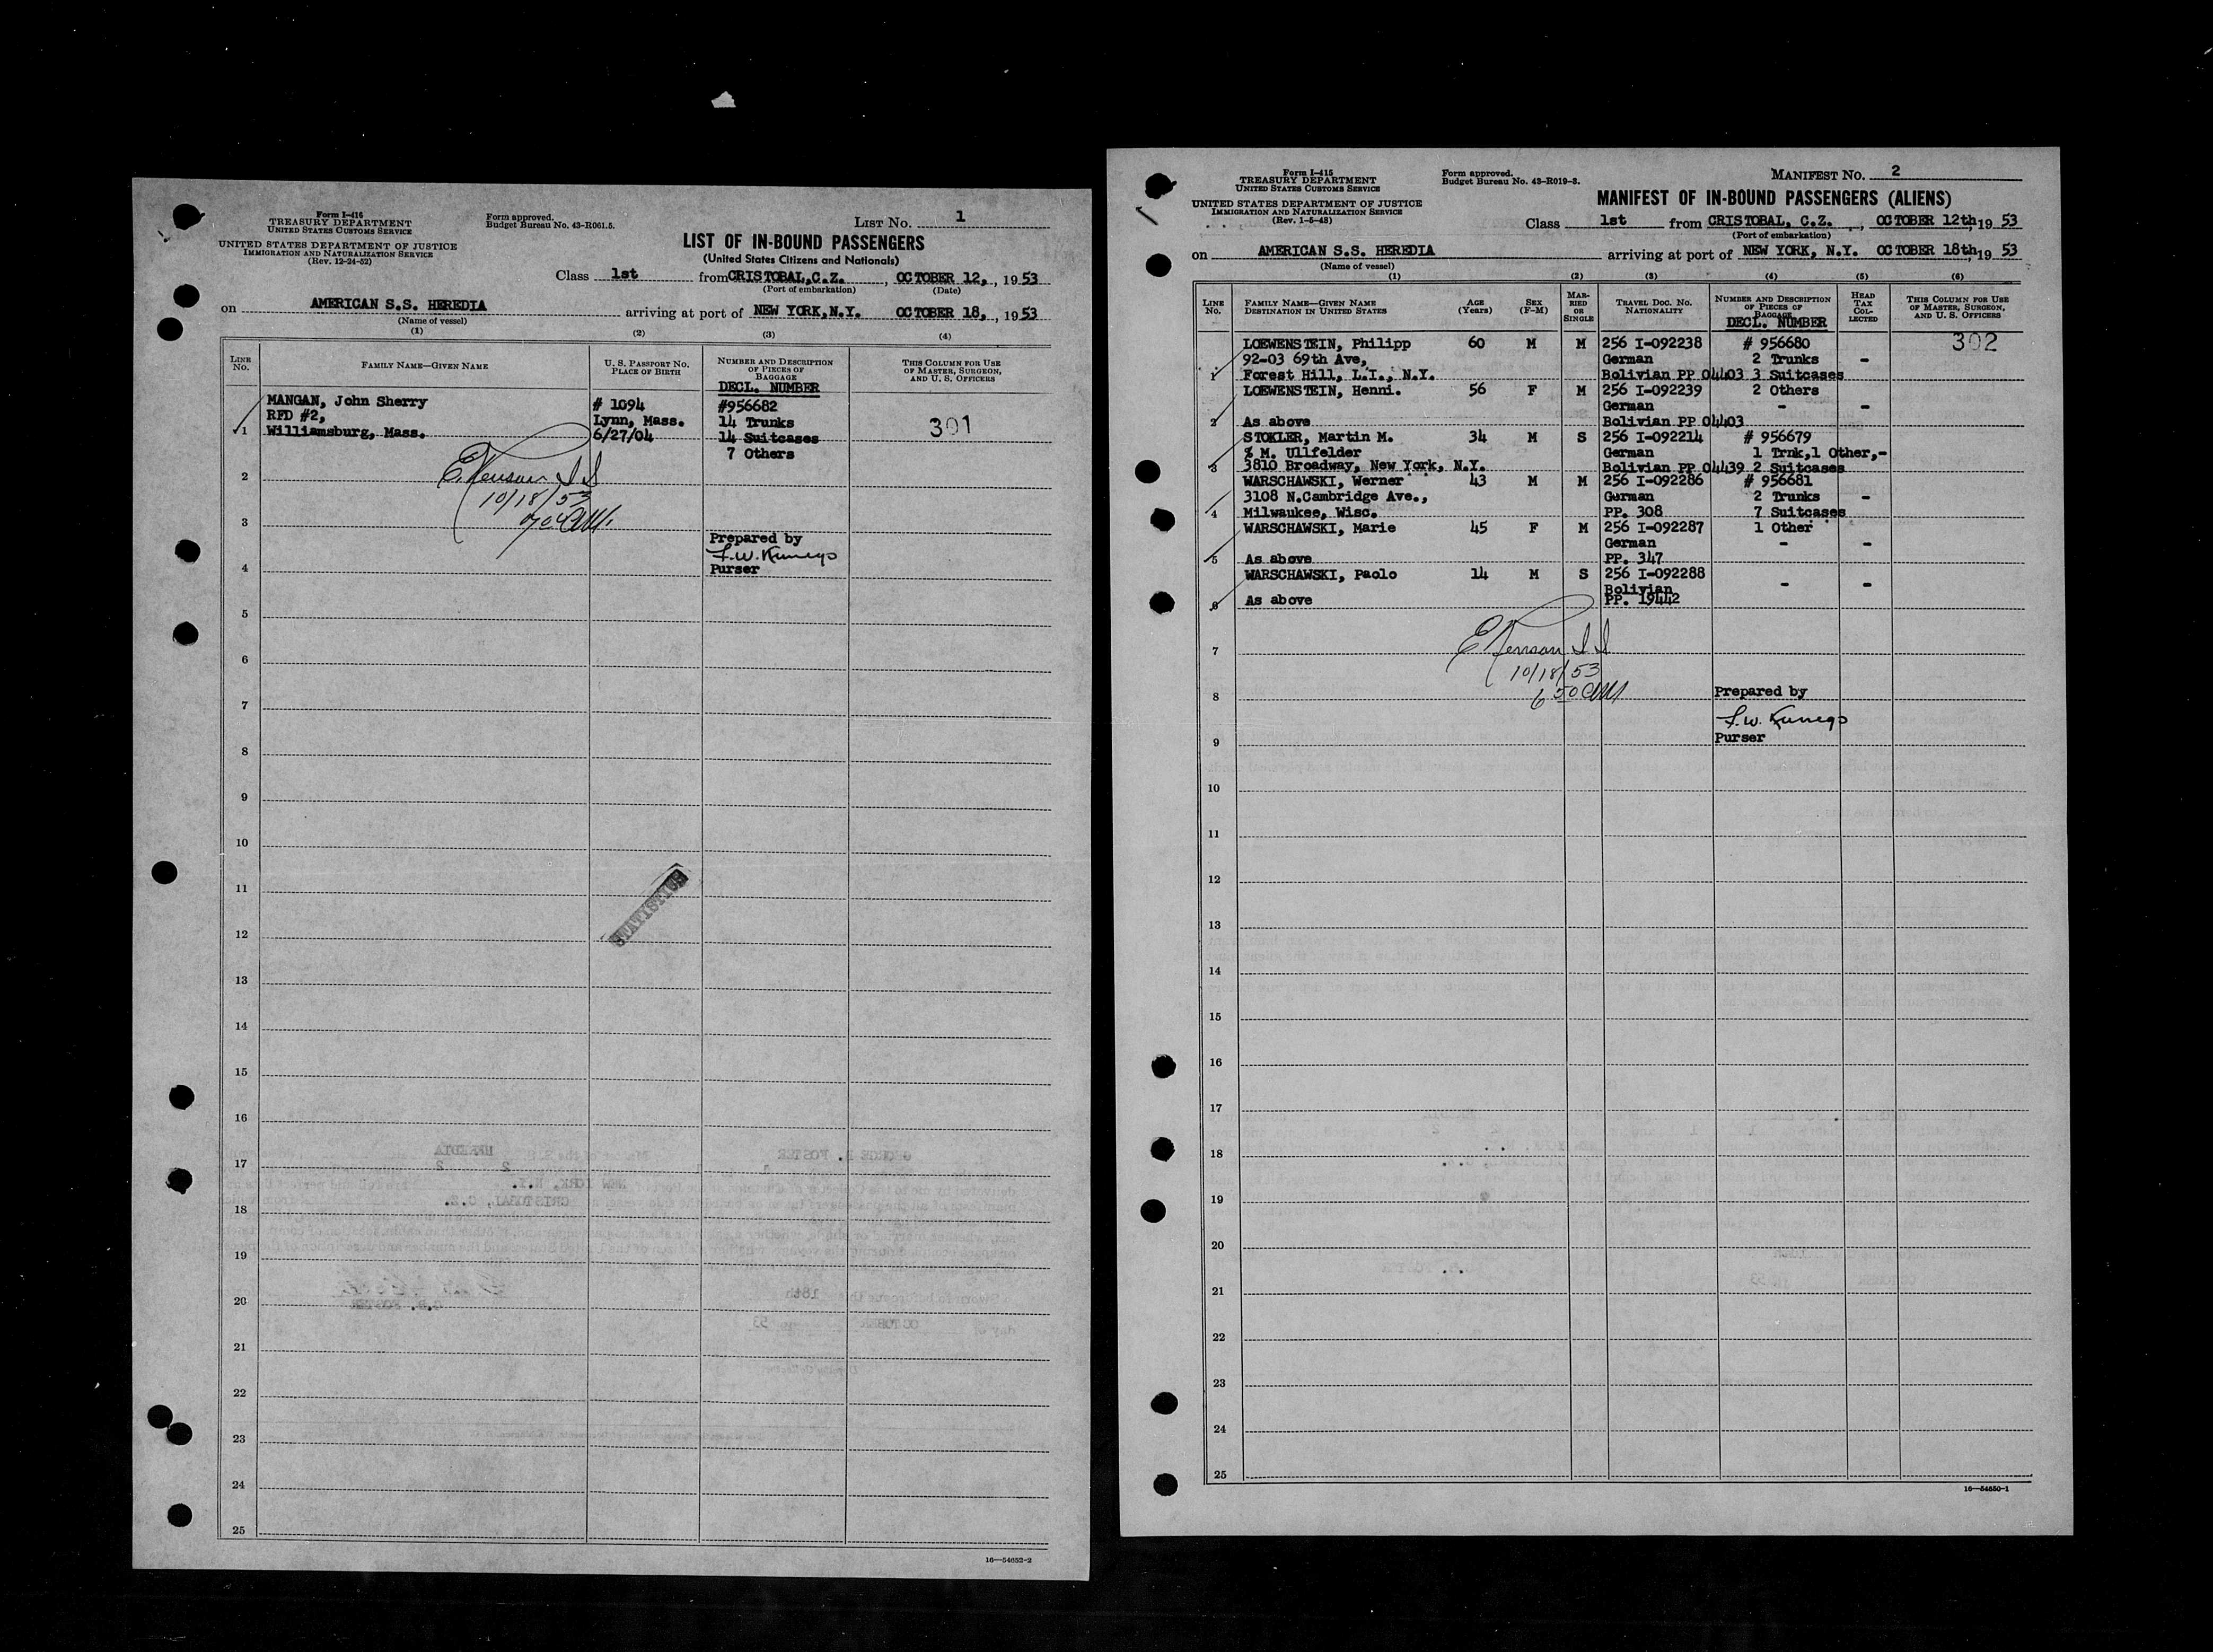 Form I-416
TREASURY DEPARTMENT
UNITED STATES CUSTOMS SERVICE
UNITED STATES DEPARTMENT OF JUSTICE
IMMIGRATION AND NATURALIZATION SERVICE
(Rev. 12-24-52)
Form approved.
Budget Bureau No. 43-R061.5.
LIST No. 1
LIST OF IN-BOUND PASSENGERS
(United States Citizens and Nationals)
Class 1st from CRISTOBAL,C.Z. , OCTOBER 12, , 1953
(Port of embarkation) (Date)
on AMERICAN S.S. HEREDIA arriving at port of NEW YORK,N.Y. OCTOBER 18, , 1953
(Name of vessel)
(1) (2) (3) (4)
LINE No. FAMILY NAME—GIVEN NAME U. S. PASSPORT No. PLACE OF BIRTH NUMBER AND DESCRIPTION OF PIECES OF BAGGAGE DECL. NUMBER THIS COLUMN FOR USE OF MASTER, SURGEON, AND U. S. OFFICERS
MANGAN, John Sherry # 1094 #956682
RFD #2, Lynn, Mass. 14 Trunks 301
1 Williamsburg, Mass. 6/27/04 14 Suitcases
7 Others
2
10/18/53
3
Prepared by
4 Purser
5
6
7
8
9
10
11
STATISTICS
12
13
14
15
16
17
18
19
20
21
22
23
24
25
16—54652-2
Form I-415
TREASURY DEPARTMENT
UNITED STATES CUSTOMS SERVICE
UNITED STATES DEPARTMENT OF JUSTICE
IMMIGRATION AND NATURALIZATION SERVICE
(Rev. 1-5-48)
Form approved.
Budget Bureau No. 43-R019-3.
MANIFEST No. 2
MANIFEST OF IN-BOUND PASSENGERS (ALIENS)
Class 1st from CRISTOBAL, C.Z. , OCTOBER 12th, 1953
(Port of embarkation)
on AMERICAN S.S. HEREDIA arriving at port of NEW YORK, N.Y. OCTOBER 18th, 1953
(Name of vessel)
(1) (2) (3) (4) (5) (6)
LINE No. FAMILY NAME—GIVEN NAME DESTINATION IN UNITED STATES AGE (Years) SEX (F-M) MARRIED OR SINGLE TRAVEL DOC. No. NATIONALITY NUMBER AND DESCRIPTION OF PIECES OF BAGGAGE DECL. NUMBER HEAD TAX COLLECTED THIS COLUMN FOR USE OF MASTER, SURGEON, AND U. S. OFFICERS
LOEWENSTEIN, Philipp 60 M M 256 I-092238 # 956680 302
92-03 69th Ave, German 2 Trunks -
1 Forest Hill, L.I., N.Y. Bolivian PP 04403 3 Suitcases
LOEWENSTEIN, Henni. 56 F M 256 I-092239 2 Others
German - -
2 As above Bolivian PP 04403
STOKLER, Martin M. 34 M S 256 I-092214 # 956679
% M. Ullfelder German 1 Trnk,1 Other,-
3 3810 Broadway, New York, N.Y. Bolivian PP 04439 2 Suitcases
WARSCHAWSKI, Werner 43 M M 256 I-092286 # 956681
3108 N.Cambridge Ave., German 2 Trunks -
4 Milwaukee, Wisc. PP. 308 7 Suitcases
WARSCHAWSKI, Marie 45 F M 256 I-092287 1 Other
German - -
5 As above PP. 347
WARSCHAWSKI, Paolo 14 M S 256 I-092288
Bolivian - -
6 As above PP. 19442
7
10/18/53
8 6 50 AM Prepared by
9 Purser
10
11
12
13
14
15
16
17
18
19
20
21
22
23
24
25
16—54650-1